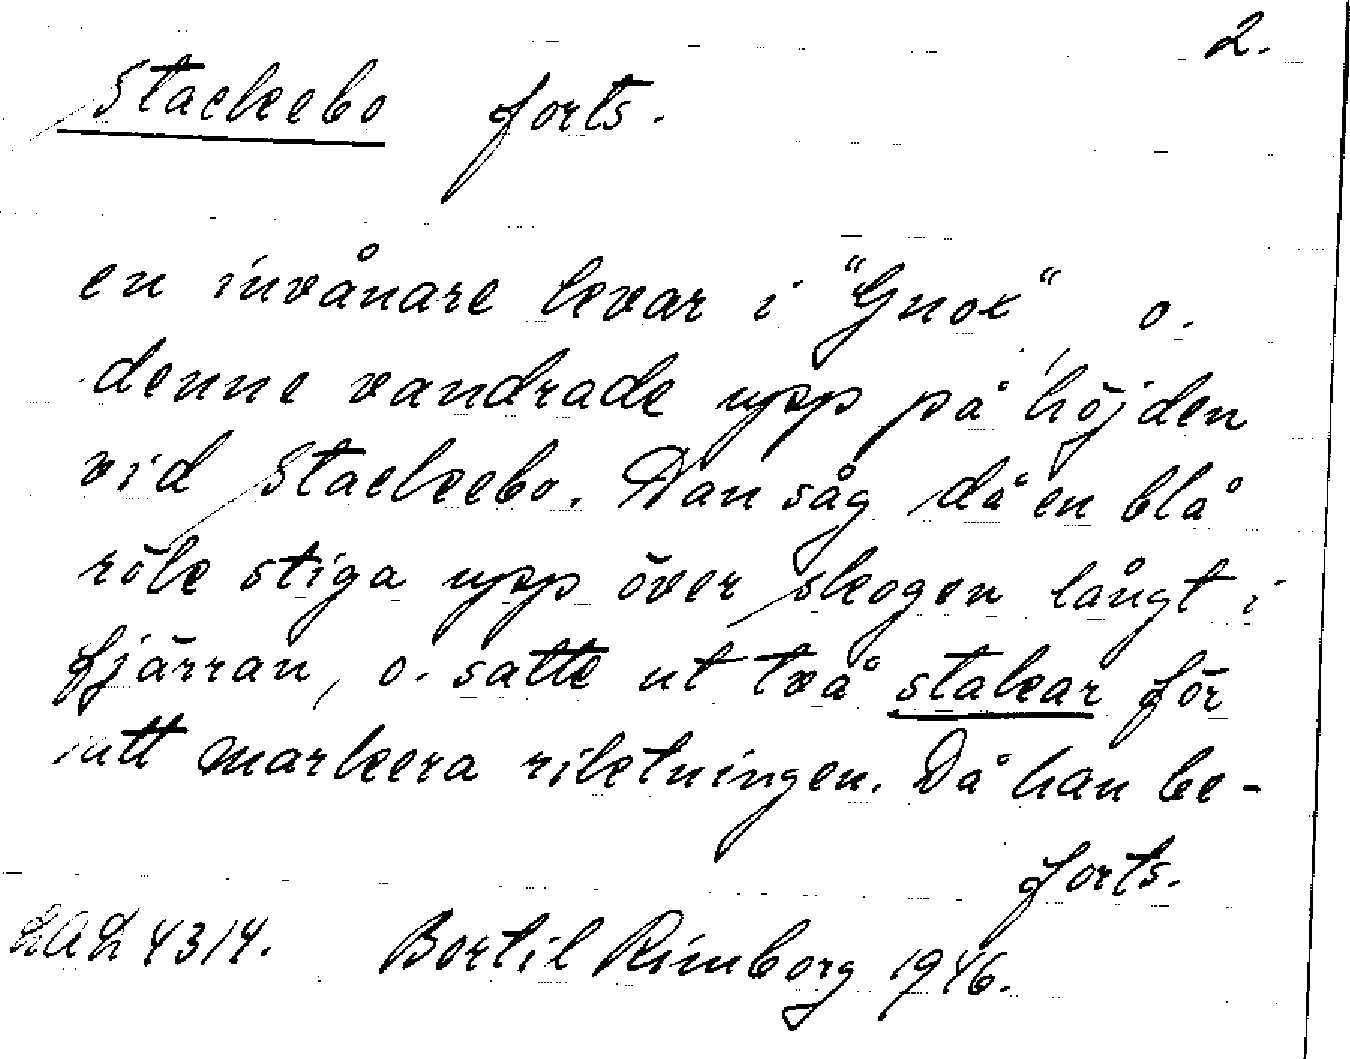 2.
Stackebo forts.
en invånare levar i "Gnox" o.
denne vandrade upp på höjden
vid Stackebo. Dan såg då en blå
rök stiga upp över skogen långt i
fjärran, o. satte ut två stakar för
att markera riktningen. Då han be-
forts.
LAL 4314. Bertil Rimborg 1946.